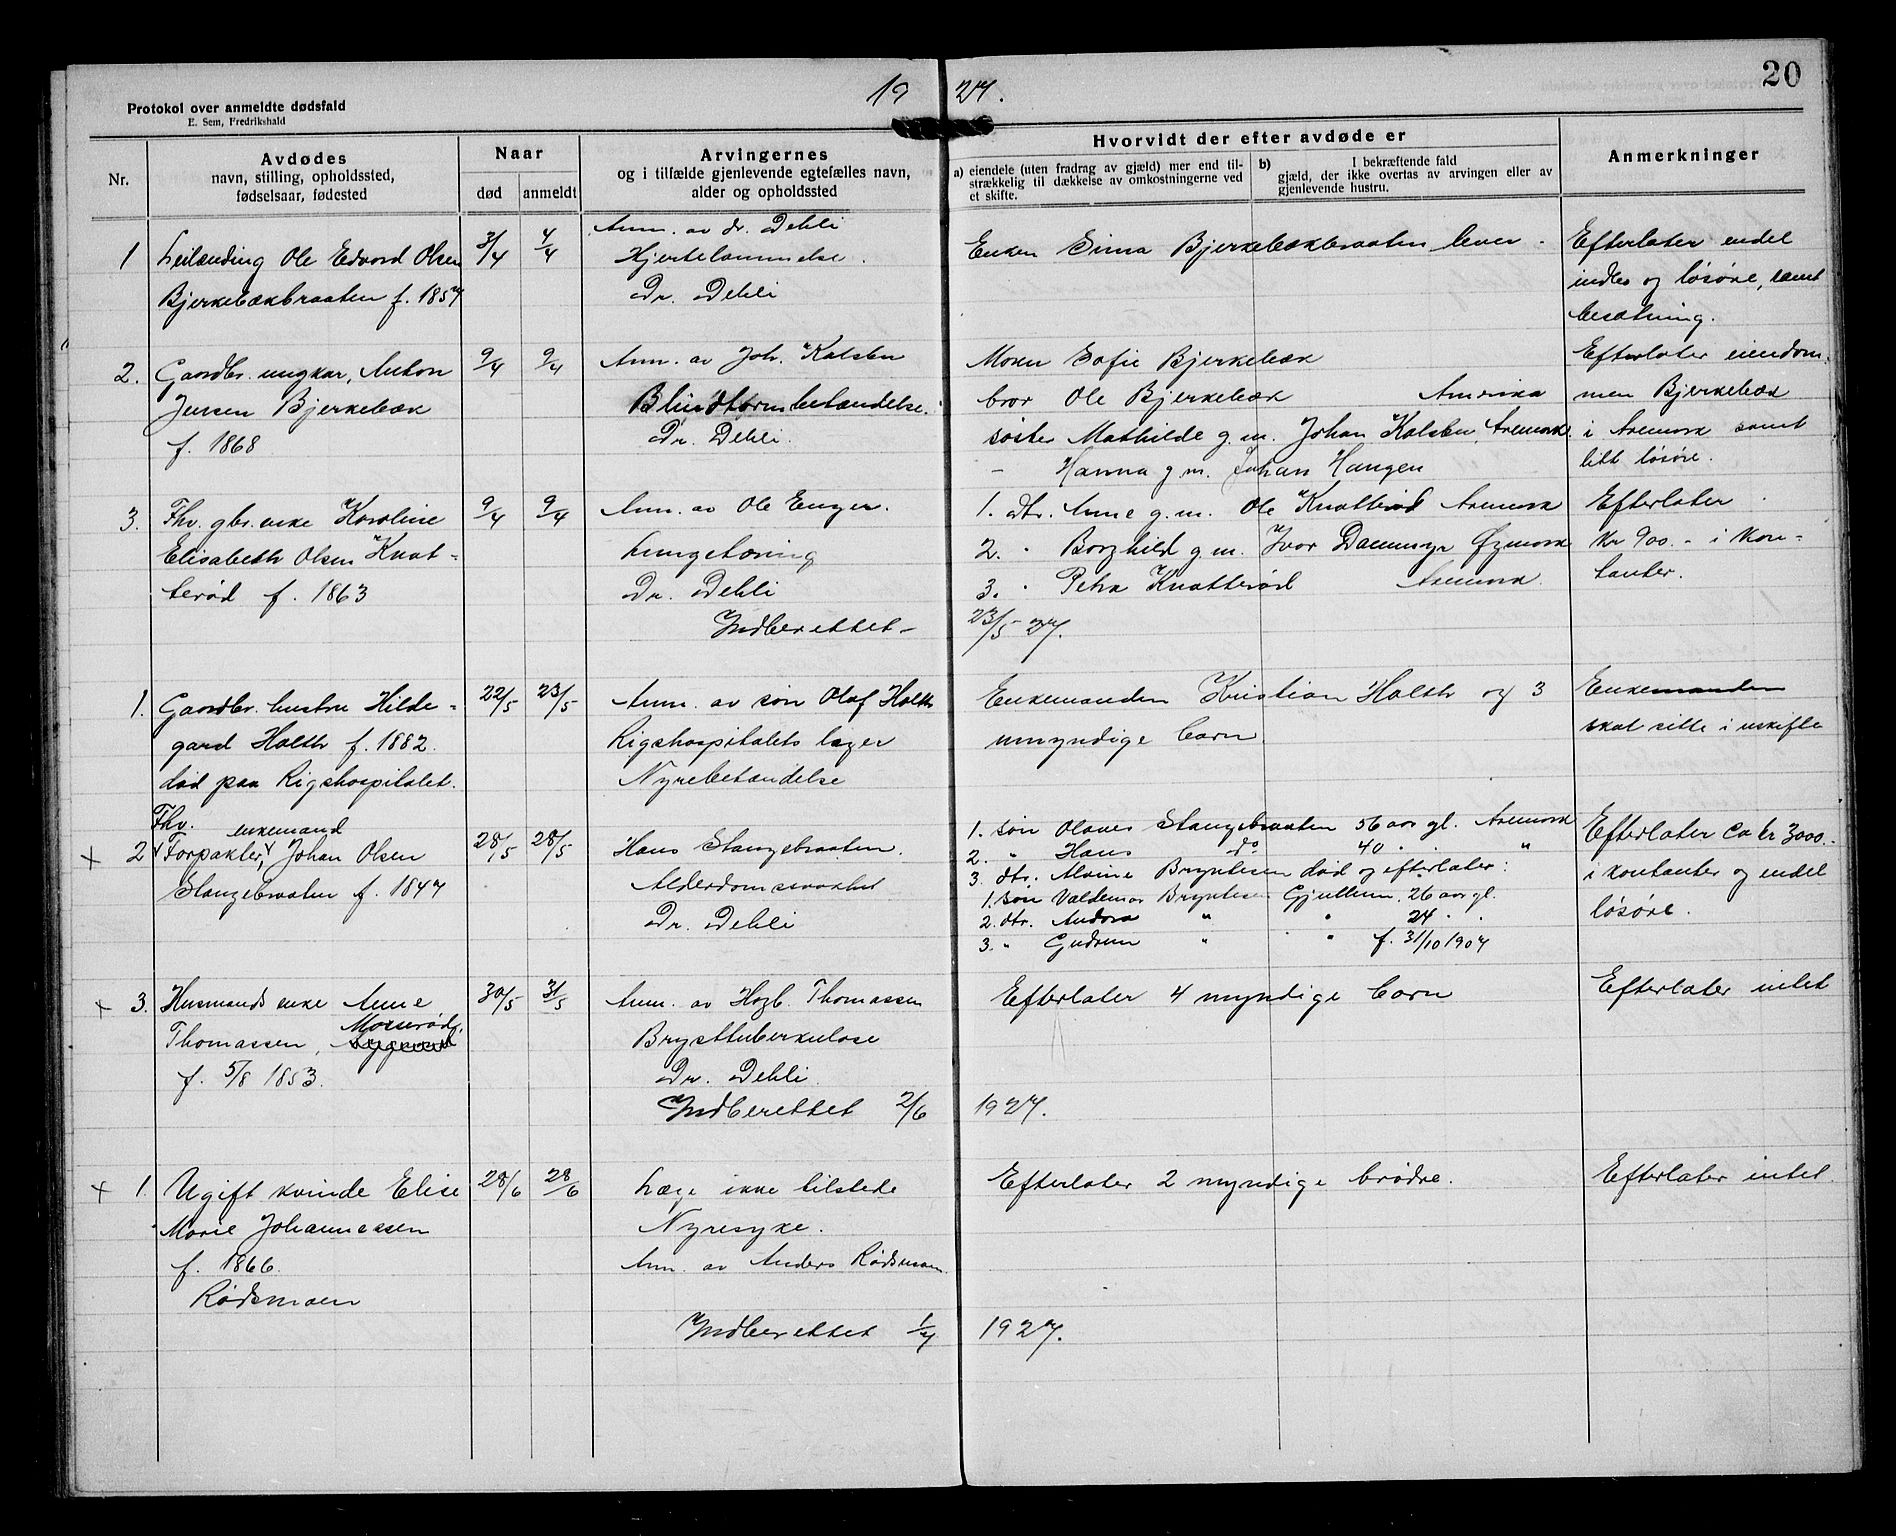 19 27.
20
Protokol over anmeldte dødsfald
E. Sem, Fredrikshald
Nr.
Avdødes
navn, stilling, opholdssted,
fødselsaar, fødested
Naar
død anmeldt
Arvingernes
og i tilfælde gjenlevende egtefælles navn,
alder og opholdssted
Hvorvidt der efter avdøde er
a) eiendele (uten fradrag av gjæld) mer end til-
strækkelig til dækkelse av omkostningerne ved
et skifte.
b) I bekræftende fald
gjæld, der ikke overtas av arvingen eller av
gjenlevende hustru.
Anmerkninger
1 Leilænding Ole Edvard Olsen
Bjerkebækbraaten f. 1857
3/4 4/4
Anm. av dr. Dehli
Hjertelammelse.
Dr. Dehli
Enken Sima Bjerkebækbraaten lever.
Efterlater endel
indbo og løsøre, samt
besætning.
2. Gaardbr. ungkar, Anton
Jensen Bjerkebæk
f. 1868
9/4 9/4
Anm. av Joh. Kolsbu
Blindtarmbetændelse.
Dr. Dehli.
Moren Sofie Bjerkebæk
bror Ole Bjerkebæk Amerika
søster Mathilde g.m. Johan Kolsbu, Aremark.
- Hanna g.m. Johan Haugen
Efterlater eiendom-
men Bjerkebæk
i Aremark samt
litt løsøre.
3. Fhv. gbr. enke Karoline
Elisabeth Olsen Knat-
terød f. 1863
9/4 9/4
Anm. av Ole Enger.
Lungetæring
Dr. Dehli
Indberettet -
23/5 - 27.
1. dtr. Anne g.m. Ole Knatterød Aremark
2. " Borghild g.m. Ivar Dammyr Øymark
3. " Petra Knatterød Aremark.
Efterlater
kr 900.- i kon-
tanter.
1. Gaardbr. hustru Hilde-
gard Holth f. 1882.
død paa Rigshospitalet.
22/5 23/5
Anm. av søn Olaf Holth
Rigshospitalets læger
Nyrebetændelse
Enkemanden Kristian Holth og 3
umyndige barn
Enkemanden
skal sitte i uskifte
+ 2 Fhv. enkemand
Forpakter, Johan Olsen
Stangebraaten f. 1847
28/5 28/5
Hans Stangebraaten.
Alderdomssvakhet
Dr. Dehli
1. søn Olaves Stangebraaten 56 aar gl. Aremark
2. " Hans do 40 " "
3. dtr. Alvine Bryntesen død og efterlater:
1. søn Valdemar Bryntesen 26 aar gl.
2. dtr. Andora " " 24 " "
3. " Gudrun " " f. 31/10 1907
Efterlater ca kr 3000.-
i kontanter og endel
løsøre.
+ 3. Husmands enke Anne
Thomassen, Moserød
f. 5/8 1853.
30/5 31/5
Anm. av Hagb. Thomassen
Brysttuberkulose
Dr. Dehli
Indberettet 2/6 1927.
Efterlater 4 myndige barn
Efterlater intet
+ 1. Ugift kvinde Elise
Marie Johannessen
f. 1866
Rødsmoen
28/6 28/6
Læge ikke tilstede
Nyresyke.
Anm. av Anders Rødsmoen
Indberettet 1/7 1927.
Efterlater 2 myndige brødre.
Efterlater intet.